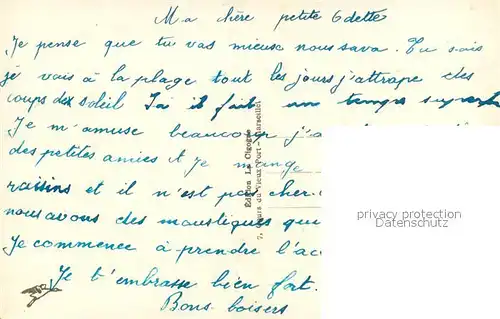 Ma chère petite Odette
Je pense que tu vas mieux nous sava. Tu sais
je vais à la plage tout les jours j'attrape des
coups de soleil Ici il fait un temps superbe
Je m'amuse beaucoup j'a
des petites amies et je mange
raisins et il n'est pas cher.
nous avons des moustiques que
Je commence à prendre l'acc
Je t'embrasse bien fort.
Bons baisers
Edition La Cigogne
7, Cours du Vieux-Port - Marseille
privacy protection
Datenschutz